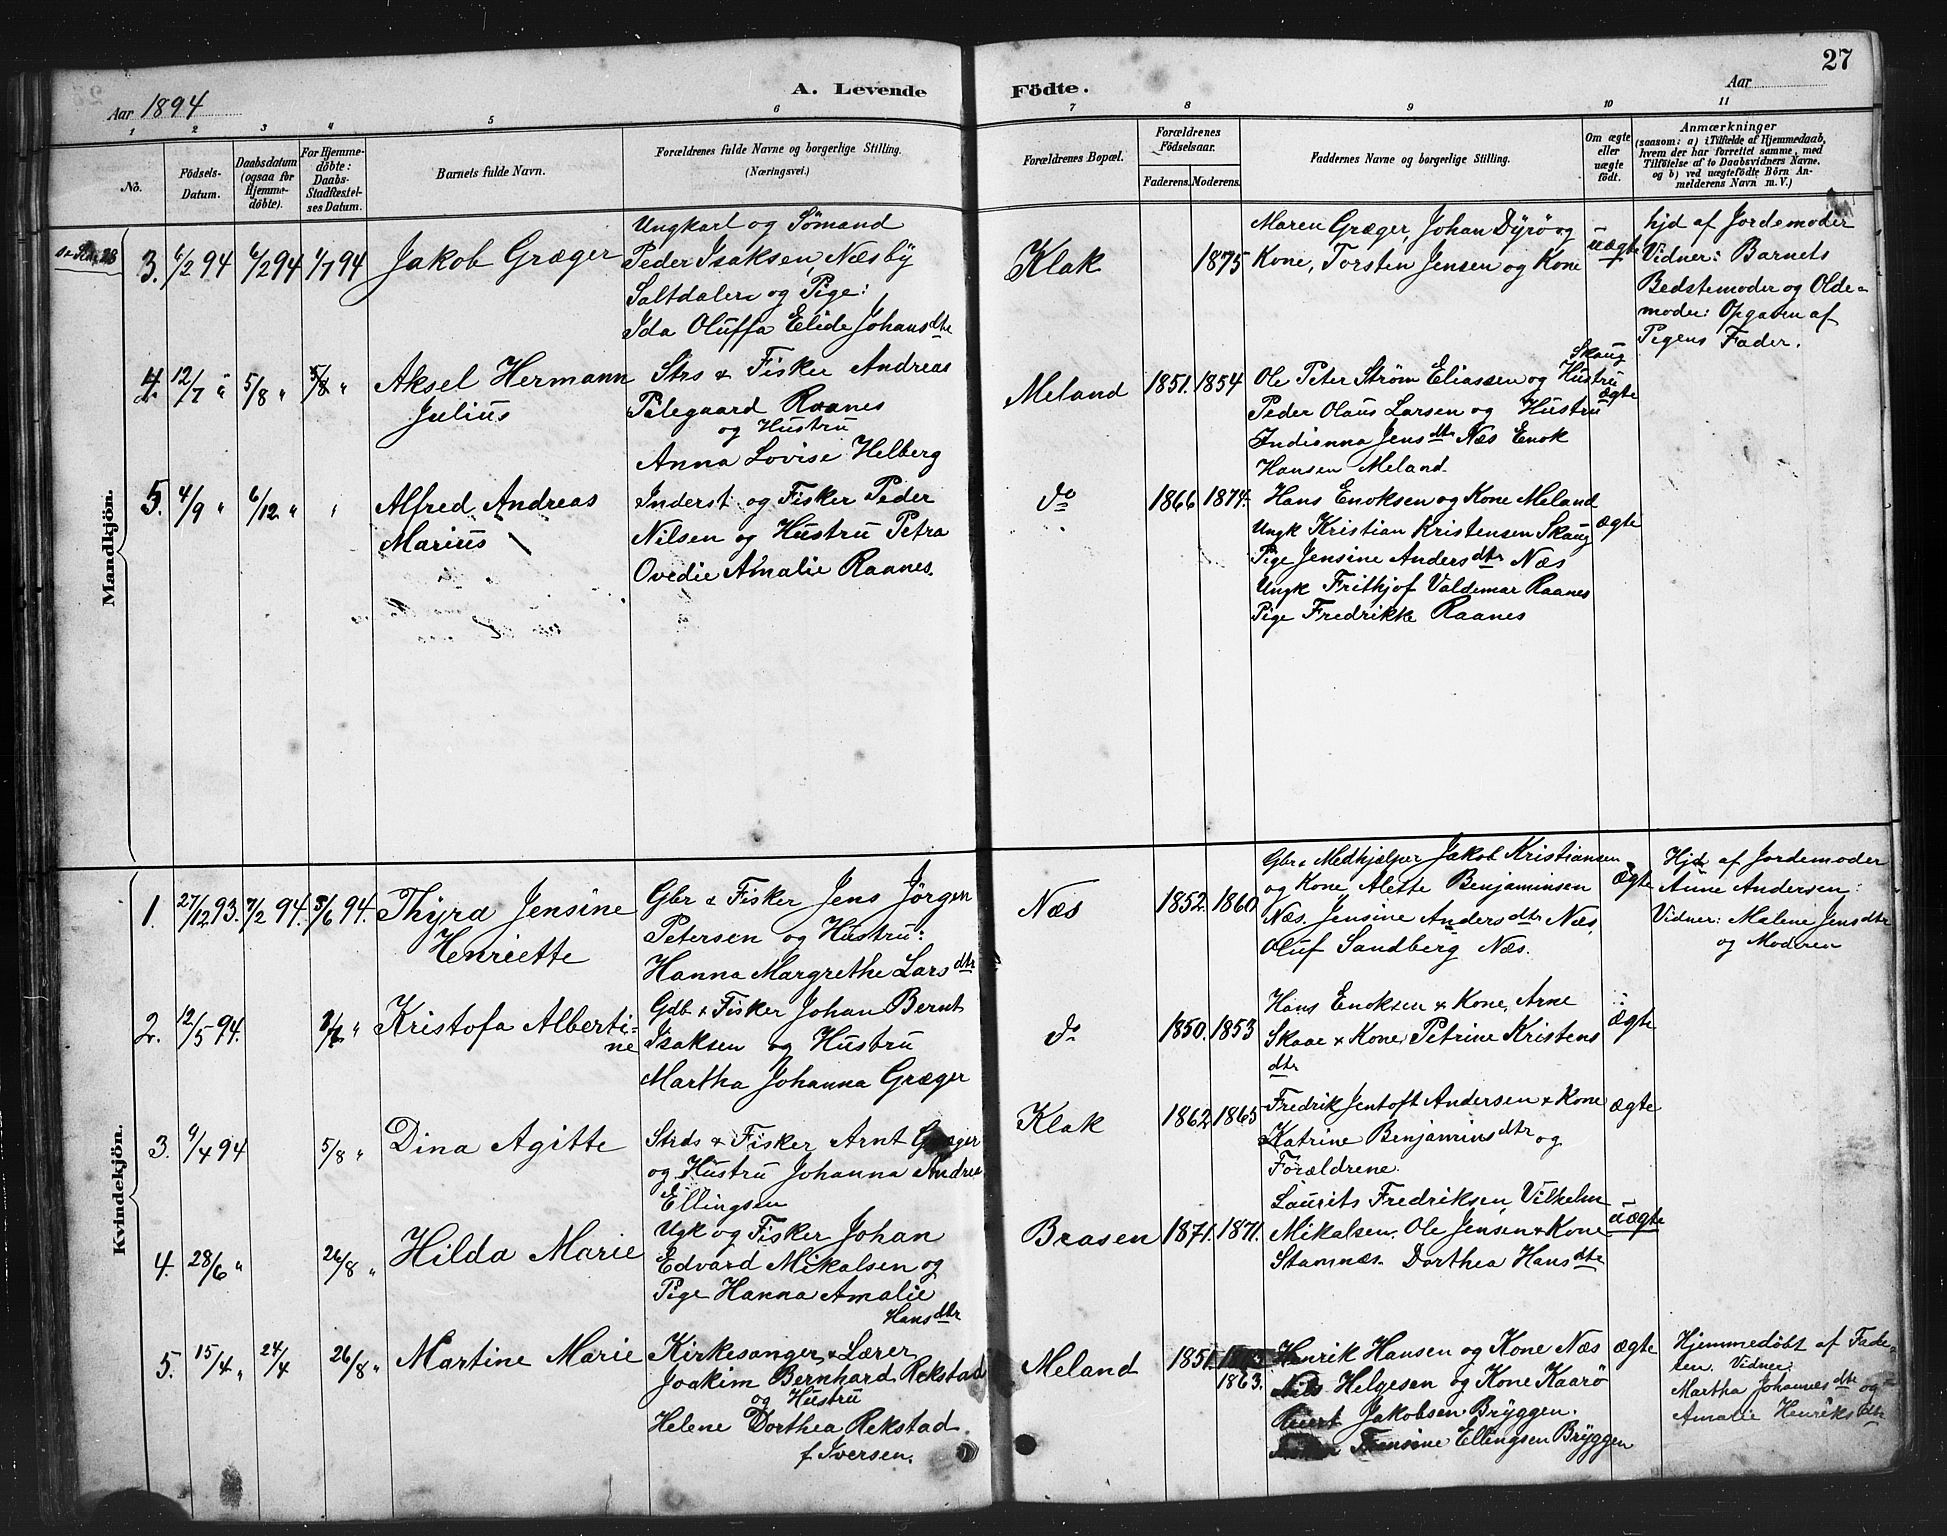 27
Aar 1894
A. Levende Födte.
Aar
1 2 3 4 5 6 7 8 9 10 11
No.
Födsels-
Datum.
Daabsdatum
(ogsaa for
Hjemme-
döbte).
For Hjemme-
döbte:
Daabs-
Stadfæstel-
ses Datum.
Barnets fulde Navn.
Forældrenes fulde Navne og borgerlige Stilling.
(Næringsvei.)
Forældrenes Bopæl.
Forældrenes
Födselsaar.
Faderens. Moderens.
Faddernes Navne og borgerlige Stilling.
Om ægte
eller
uægte
födt.
Anmærkninger
(saasom: a) i Tilfælde af Hjemmedaab,
hvem der har forrettet samme, med
Tilföielse af to Daabsvidners Navne.
og b) ved uægtefödte Börn An-
melderens Navn m. V.)
Mandkjön.
3. 6/2 94 6/2 94 1/7 94
Jakob Græger
Ungkarl og Sömand
Peder Isaksen, Næsby
Saltdalen og Pige:
Ida Oluffa Elide Johansdtr
Klak
1875
Maren Græger, Johan Dyrö og
Kone, Torsten Jensen og Kone
uægte
hjd af Jordemoder
Vidner: Barnets
Bedstemoder og Olde-
moder: Opgaven af
Pigens Fader.
4. 12/7 " 5/8 " 5/8 "
Aksel Hermann
Julius
Strs & Fisker Andreas
Pilegaard Raanes
og Hustru
Anna Lovise Helberg
Meland
1851. 1854
Skaug
Ole Peter Strøm Eliassen og Hustru
Peder Olaus Larsen og Hustru
Indianna Jensdtr Næs Enok
Hansen Meland
ægte
5. 4/9 " 6/12 " "
Alfred Andreas
Marius
Inderst og Fisker Peder
Nilsen og Hustru Petra
Ovedie Amalie Raanes.
do
1866 1874.
Hans Enoksen og Kone Meland
Ungk Kristian Kristensen Skaug
Pige Jensine Andersdtr Næs
Ungk Frithjof Valdemar Raanes
Pige Fredrikke Raanes
ægte
Kvindekjön.
1. 27/12 93. 7/2 94. 3/6 94.
Thyra Jensine
Henriette
Gbr & Fisker Jens Jörgen
Petersen og Hustru:
Hanna Margrethe Larsdtr
Næs
1852. 1860
Gbr & Medhjælper Jakob Kristiansen
og Kone Alette Benjaminsen
Næs. Jensine Andersdtr Næs,
Oluf Sandberg Næs.
ægte
Hjd af Jordemoder
Anne Andersen:
Vidner: Malene Jensdtr
og Moderen
2. 12/5 94.
Kristofa Alberti-
ne
Gdb & Fisker Johan Bernt
Isaksen og Hustru
Martha Johanna Græger
do
1850. 1853
Hans Enoksen & Kone, Arne
Skaae & Kone, Petrine Kristens
dtr
ægte
3. 9/4 94 5/8 "
Dina Agitte
Strds & Fisker Arnt Græger
og Hustru Johanna Andrea
Ellingsen
Klak
1862 1865
Fredrik Jentoft Andersen & Kone
Katrine Benjaminsdtr og
Forældrene.
ægte
4. 28/6 " 26/8 "
Hilda Marie
Ugk og Fisker Johan
Edvard Mikalsen og
Pige Hanna Amalie
Hansdtr
Brasen
1871. 1871.
Laurits Fredriksen, Vilhelm
Mikalsen. Ole Jensen & Kone
Stamnæs. Dorthea Hansdtr
uægte
5. 15/4 " 24/4 26/8 "
Martine Marie
Kirkesanger & Lærer
Joakim Bernhard Rekstad
og Hustru
Helene Dorthea Rekstad
f Iversen.
Meland
1851.
1863.
Henrik Hansen og Kone Næs
Nils Helgesen og Kone Kaarö
Jakobsen Bryggen.
Jensine Ellingsen Bryggen
ægte
Hjemmedøbt af Fade-
ren. Vidner:
Martha Johannesdtr og
Amalie Henriksdtr